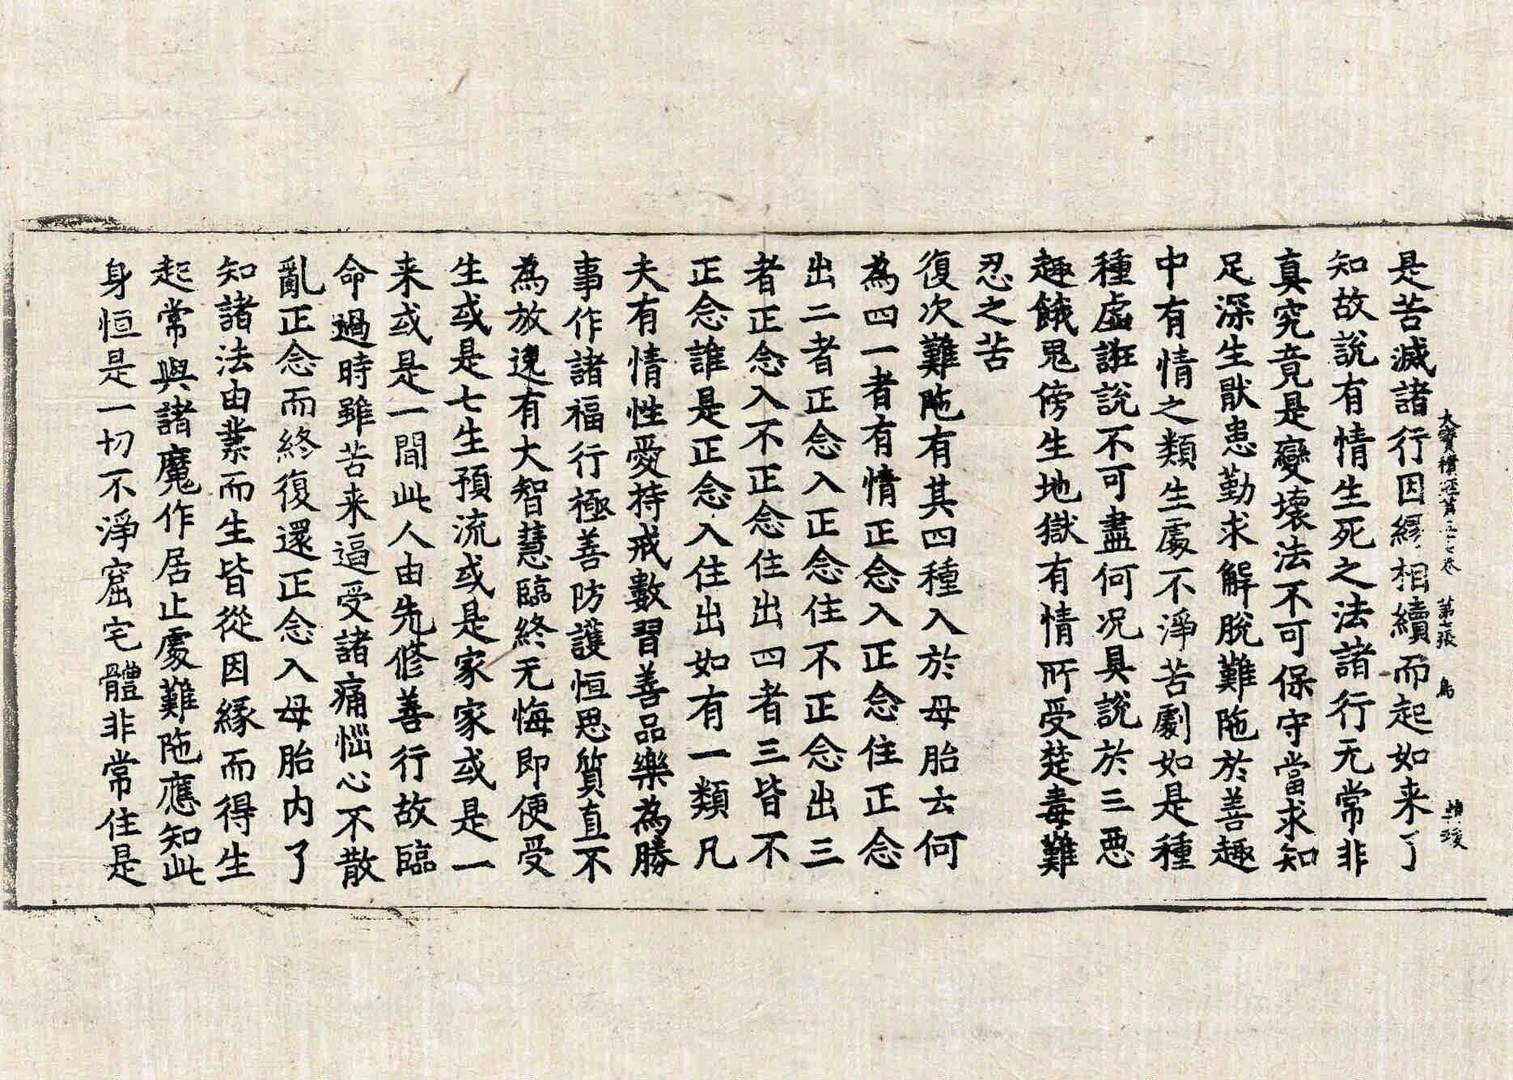 大寶積經第五十七卷 第七張 鳥
是苦滅諸行因緣相續而起如来了
知故說有情生死之法諸行无常非
真究竟是變壞法不可保守當求知
足深生猒患勤求解脫難陁於善趣
中有情之類生處不淨苦劇如是種
種虛誑說不可盡何况具說於三惡
趣餓鬼傍生地獄有情所受楚毒難
忍之苦
復次難陁有其四種入於母胎云何
為四一者有情正念入正念住正念
出二者正念入正念住不正念出三
者正念入不正念住出四者三皆不
正念誰是正念入住出如有一類凡
夫有情性愛持戒數習善品樂為勝
事作諸福行極善防護恒思質直不
為放逸有大智慧臨終无悔即便受
生或是七生預流或是家家或是一
来或是一間此人由先修善行故臨
命過時雖苦来逼受諸痛惱心不散
亂正念而終復還正念入母胎内了
知諸法由業而生皆從因緣而得生
起常與諸魔作居止處難陁應知此
身恒是一切不淨窟宅體非常住是